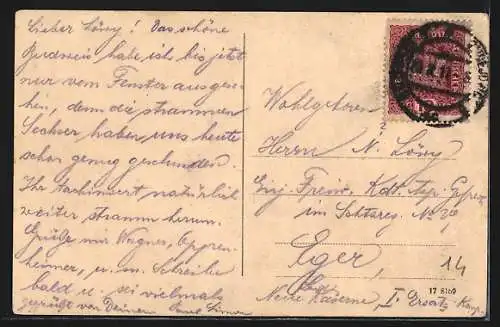 Lieber Löwy! Das schöne
Budweis habe ich bis jetzt
nur vom Fenster ausgese-
hen, denn die strammen
Sechser haben uns heute
schon genug geschunden.
Ihr tachiniert natürlich
weiter stramm herum.
Grüße mir Wagner, Oppen-
heimer, u. m. Schreibe
bald u. sei vielmals
gegrüßt von Deinem
Wohlgeboren
Herrn N. Löwy
Einj. Freiw.
im No.
Eger
Neue Kaserne, I. Ersatz Komp.
14
17 8169